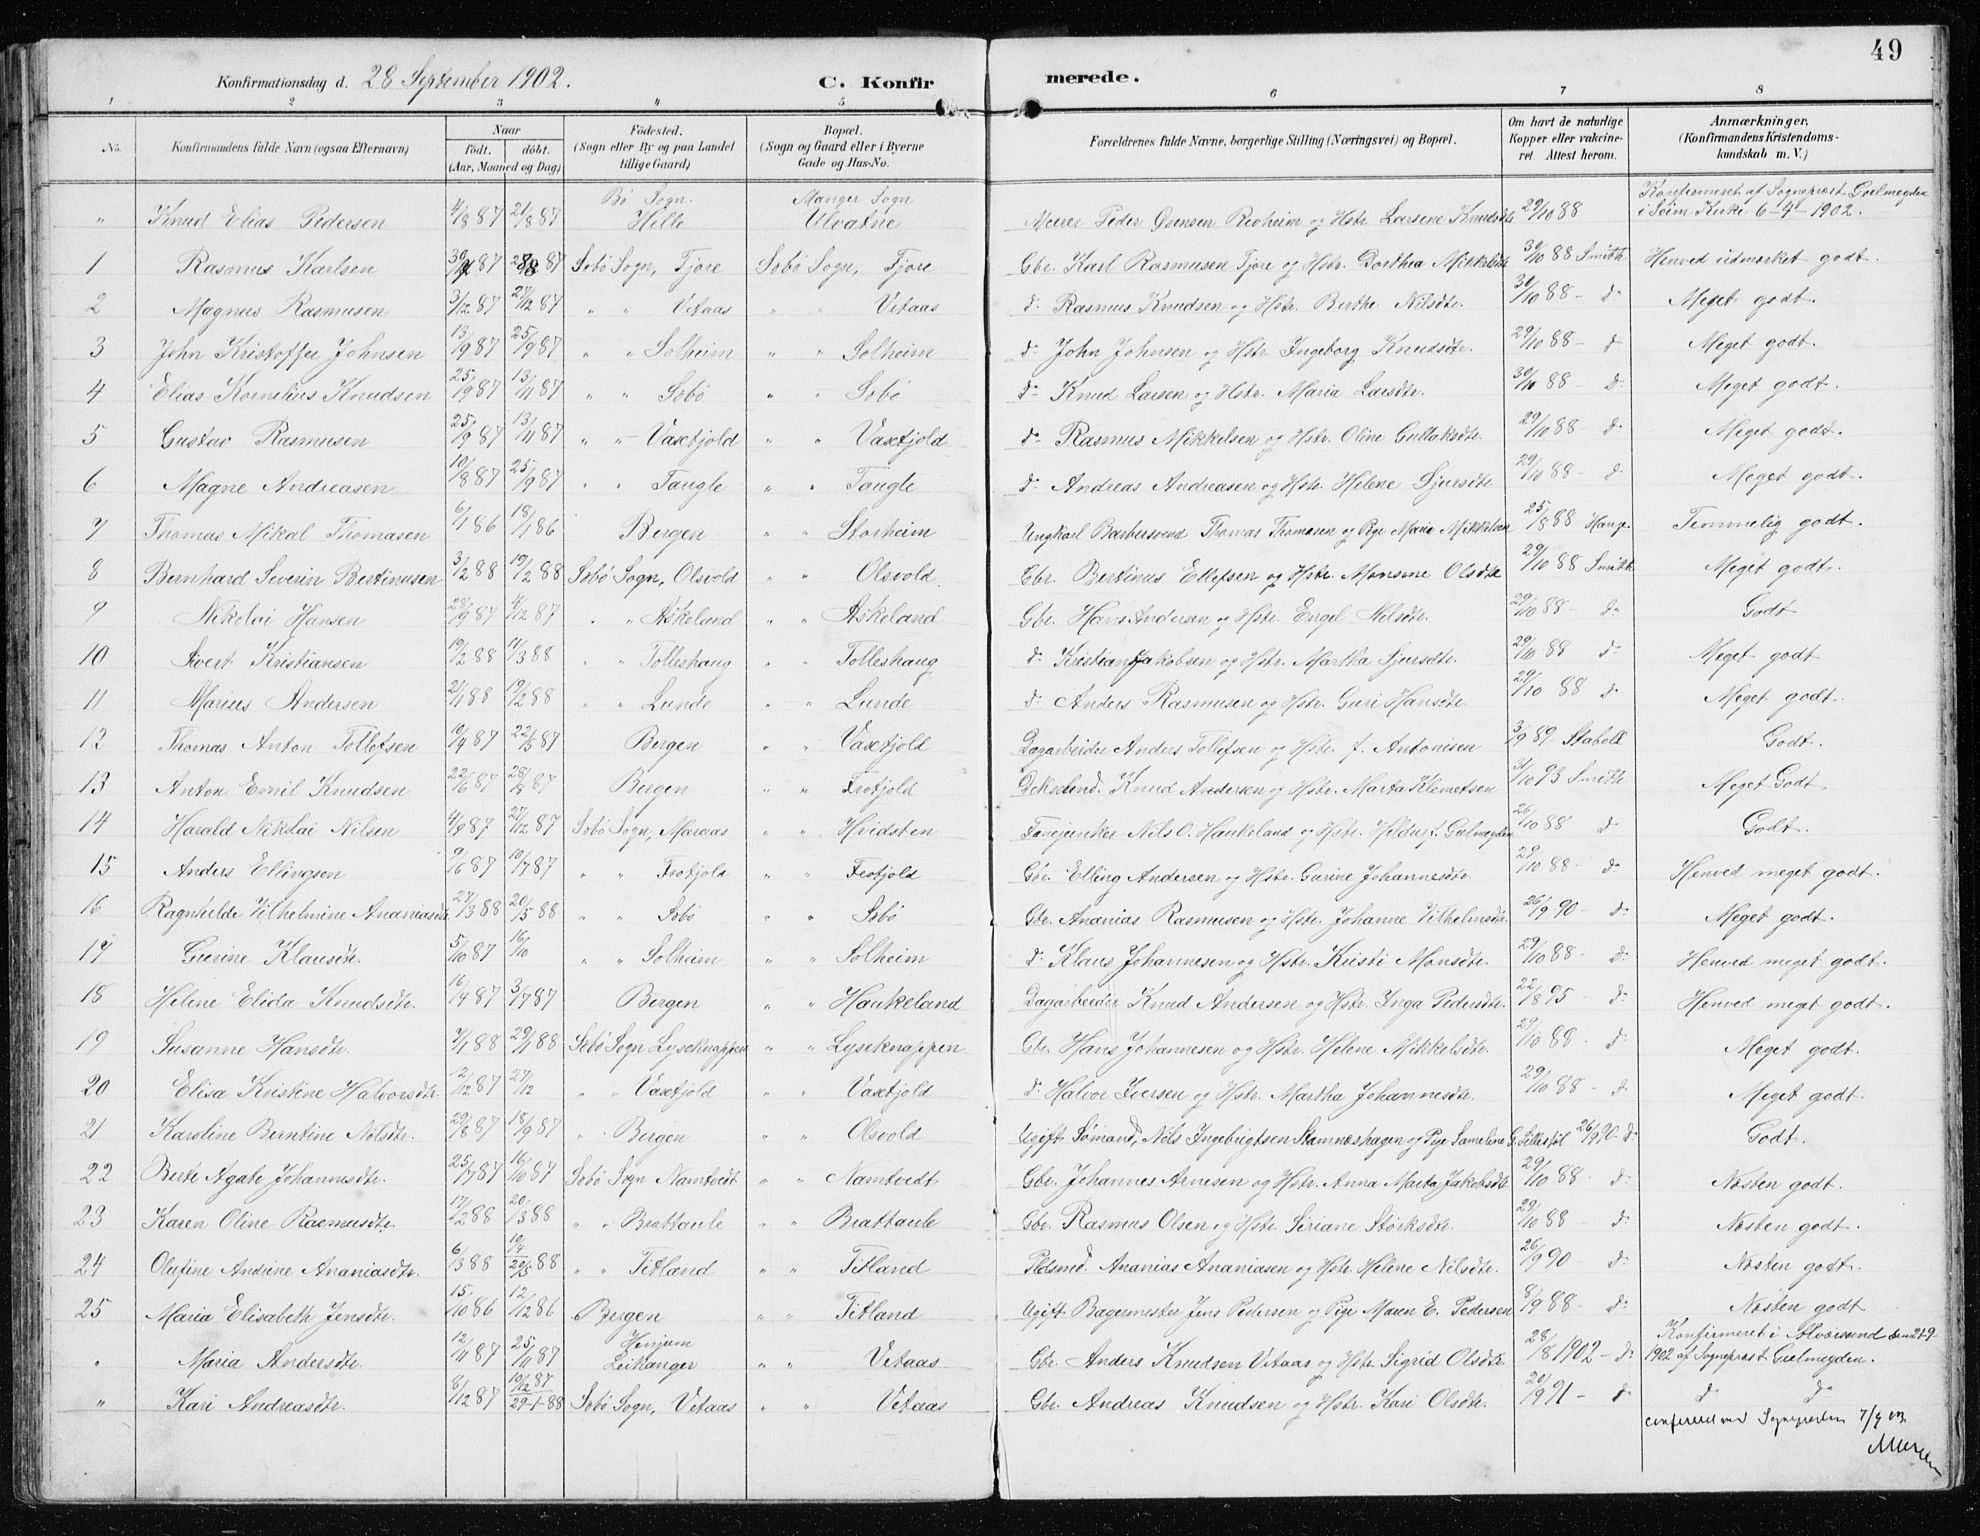 49
Konfirmationsdag d. 28 September 1902. C. Konfirmerede.
1 2 3 4 5 6 7 8
No. Konfirmandens fulde Navn (ogsaa Efternavn) Naar født. døbt. (Aar, Maaned og Dag) Fødested. (Sogn eller By og paa Landet tillige Gaard) Bopæl. (Sogn og Gaard eller i Byerne Gade og Hus-No. Forældrenes fulde Navne, borgerlige Stilling (Næringsvei) og Bopæl. Om havt de naturlige Kopper eller vakcineret. Attest herom. Anmærkninger. (Konfirmandens Kristendomskundskab m. V.)
" Knud Elias Pedersen 4/8 87 21/8 87 Bø Sogn. Hille Manger Sogn Ulvatne Murer Peder Hstr. Larsine Knudsdtr 29/10 88 Konfirmeret af Sogneprest Gjelmeyden i Seim Kirke 6-4-1902.
1 Rasmus Karlsen 87 87 Sæbø Sogn, Fjore Sæbø Sogn, Fjore Gbr. Karl Rasmusen Fjore og Hstr. Dorthea Mikkelsdtr 30/10 88 Smith Henved udmerket godt.
2 Magnus Rasmusen 3/12 87 27/12 87 " " Vetaas " " Vetaas do Rasmus Knudsen og Hstr. Berthe Nilsdtr. 30/10 88 - do Meget godt.
3 John Kristoffer Johnsen 13/9 87 25/9 87 " " Solheim " " Solheim do John Johnsen og Hstr. Ingeborg Knudsdtr. 29/10 88 - do Meget godt.
4 Elias Kornelius Knudsen 25/9 87 13/11 87 " " Sæbø " " Sæbø do Knud Larsen og Hstr. Maria Larsdtr. 30/10 88 - do Meget godt.
5 Gustav Rasmusen 25/9 87 13/11 87 " " Vaxtjold " " Vaxtjold do Rasmus Mikkelsen og Hstr. Oline Gullaksdtr. 29/10 88 - do Meget godt.
6 Magne Andreasen 10/8 87 25/9 87 " " Taugle " " Taugle do Andreas Andreasen og Hstr. Helene Sjursdtr 29/10 88 - do Meget godt.
7 Thomas Mikal Thomasen 6/1 86 18/1 86 Bergen " " Storheim Ungkarl Barbersvend Thomas Thomasen og Pige Maria Mikkelsen 25/8 88 Hauge. Temmelig godt.
8 Bernhard Severin Bertinusen 3/2 88 19/2 88 Sæbø Sogn, Olsvold " " Olsvold Gbr. Bertinus Ellefsen og Hstr. Monsine Olsdtr 29/10 88 Smith Meget godt.
9 Nikolai Hansen 28/9 87 4/12 87 " " Askeland " " Askeland Gbr. Hans Andersen og Hstr. Engel Nilsdtr. 29/10 88 - do Godt
10 Sivert Kristiansen 19/2 88 11/3 88 " " Tolleshaug " " Tolleshaug do Kristian Jakobsen og Hstr. Martha Sjursdtr. 29/10 88 do Meget godt
11 Marius Andersen 21/1 88 19/2 88 " " Lunde " " Lunde do Anders Rasmusen og Hstr. Guri Hansdtr. 29/10 88 do Meget godt.
12 Thomas Anton Tollefsen 10/4 87 22/5 87 Bergen " " Vaxtjold Dagarbeider Anders Tollefsen og Hstr. f. Antonisen 3/9 89 Stabell Godt.
13 Anton Emil Knudsen 22/6 87 28/8 87 Bergen " " Frotjold Knud Andersen og Hstr. Marta Klemetsen 3/10 93 Smith Meget Godt
14 Harald Nikolai Nilsen 4/9 87 27/12 87 Sæbø Sogn, Maraas " " Hvidsten Fanejunker Nils O. Haukeland og Hstr. f. Gjelmeyden 26/10 88 do Godt.
15 Anders Ellingsen 9/6 87 10/7 87 " " Frotjold " " Frotjold Gbr. Elling Andersen og Hstr. Gurine Johannesdtr. 29/10 88 - do Henved meget godt.
16 Ragnhilde Vilhelmine Ananiasdtr 27/3 88 20/5 88 " " Sæbø " " Sæbø Gbr. Ananias Rasmusen og Hstr. Johanne Vilhelmsdtr 26/9 90 - do Meget godt.
17 Gurine Klausdtr. 5/10 87 16/10 " " Solheim " " Solheim do Klaus Johannesen og Hstr. Kristi Monsdtr. 29/10 88 - do Henved meget godt.
18 Helene Elida Knudsdtr. 16/4 87 3/7 87 Bergen " " Haukeland Dagarbeider Knud Andersen og Hstr. Inga Pedersdtr. 22/8 95 - do Henved meget godt.
19 Susanne Hansdtr. 7/1 88 29/1 88 Sæbø Sogn Lyseknappen " " Lyseknappen Gbr. Hans Johannesen og Hstr. Helene Mikkelsdtr. 29/10 88 - do Meget godt.
20 Elisa Kristine Halvorsdtr. 12/12 87 27/12 " " Vaxtjold " " Vaxtjold do Halvor Iversen og Hstr. Martha Johannesdtr. 29/10 88 - do Meget godt.
21 Karoline Berntine Nilsdtr. 29/8 87 18/9 87 " Bergen " " Olsvold Ugift Sømand, Nils Ingebrigtsen Stamneshagen og Pige Sameline G. 26/9 90 - do Godt.
22 Berte Agate Johannesdtr. 25/7 87 16/10 87 Sæbø Sogn Namtvedt " " Namtvedt Gbr. Johannes Arnesen og Hstr. Anna Marta Jakobsdtr 29/10 88 - do Næsten godt.
23 Karen Oline Rasmusdtr. 17/2 88 20/3 88 " " Brattaule " " Brattaule Gbr. Rasmus Olsen og Hstr. Siriane Størksdtr. 29/10 88 - do Næsten godt.
24 Olufine Andrine Ananiasdtr. 6/3 88 10/4 20/5 88 " " Titland " " Titland Pldsmd. Ananias Ananiasen og Hstr. Helene Nilsdtr. 26/9 90 do Næsten godt.
25 Maria Elisabeth Jensdtr. 15/10 86 12/12 86 Bergen " " Titland Ugift Bagermester Jens Pedersen og Pige Maren E. Pedersen 8/9 88 - do Næsten godt
" Maria Andersdtr. 12/11 87 25/11 87 Henjum Leikanger " " Vetaas Gbr. Anders Knudsen Vetaas og Hstr. Sigrid Olsdtr. 28/8 1902 - do Konfirmeret i Alvørsund den 21-9-1902 af Sogneprest Gjelmeyden.
" Kari Andreasdtr. 8/12 87 10/12 87 29-1-88 Sæbø Sogn, Vetaas " " Vetaas Gbr. Andreas Knudsen og Hstr. Kari Olsdtr. 20/9 91 - do do do